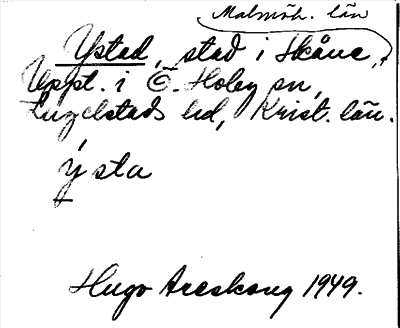 Malmöh. län
Ystad, stad i Skåne,
Uppt. i Ö. Hoby sn,
Ingelstads hd, Krist. län.
ysta
Hugo Areskoug 1949.